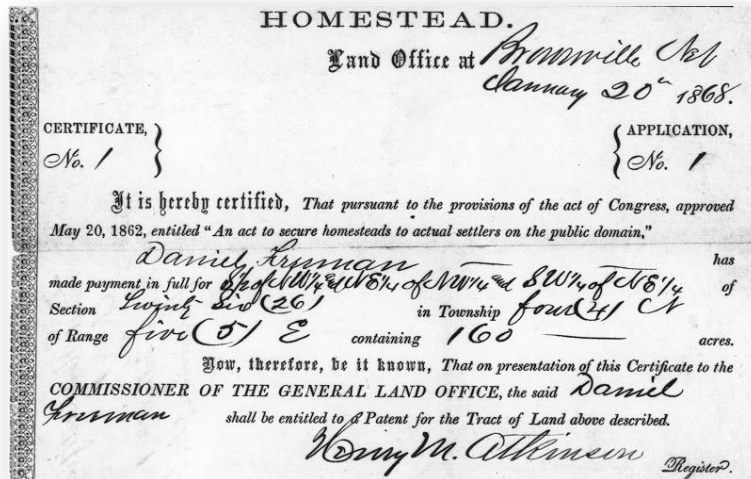 HOMESTEAD.
Land Office at Brownville Neb
January 20th 1868.
CERTIFICATE, No. 1 } { APPLICATION, No. 1
It is hereby certified, That pursuant to the provisions of the act of Congress, approved
May 20, 1862, entitled "An act to secure homesteads to actual settlers on the public domain,"
Daniel Freeman has
made payment in full for S½ of NW¼ and NE¼ of NW¼ and SW¼ of NE¼ of
Section Twenty Six (26) in Township four (4) N
of Range five (5) E containing 160 acres.
Now, therefore, be it known, That on presentation of this Certificate to the
COMMISSIONER OF THE GENERAL LAND OFFICE, the said Daniel
Freeman shall be entitled to a Patent for the Tract of Land above described.
Henry M. Atkinson
Register.